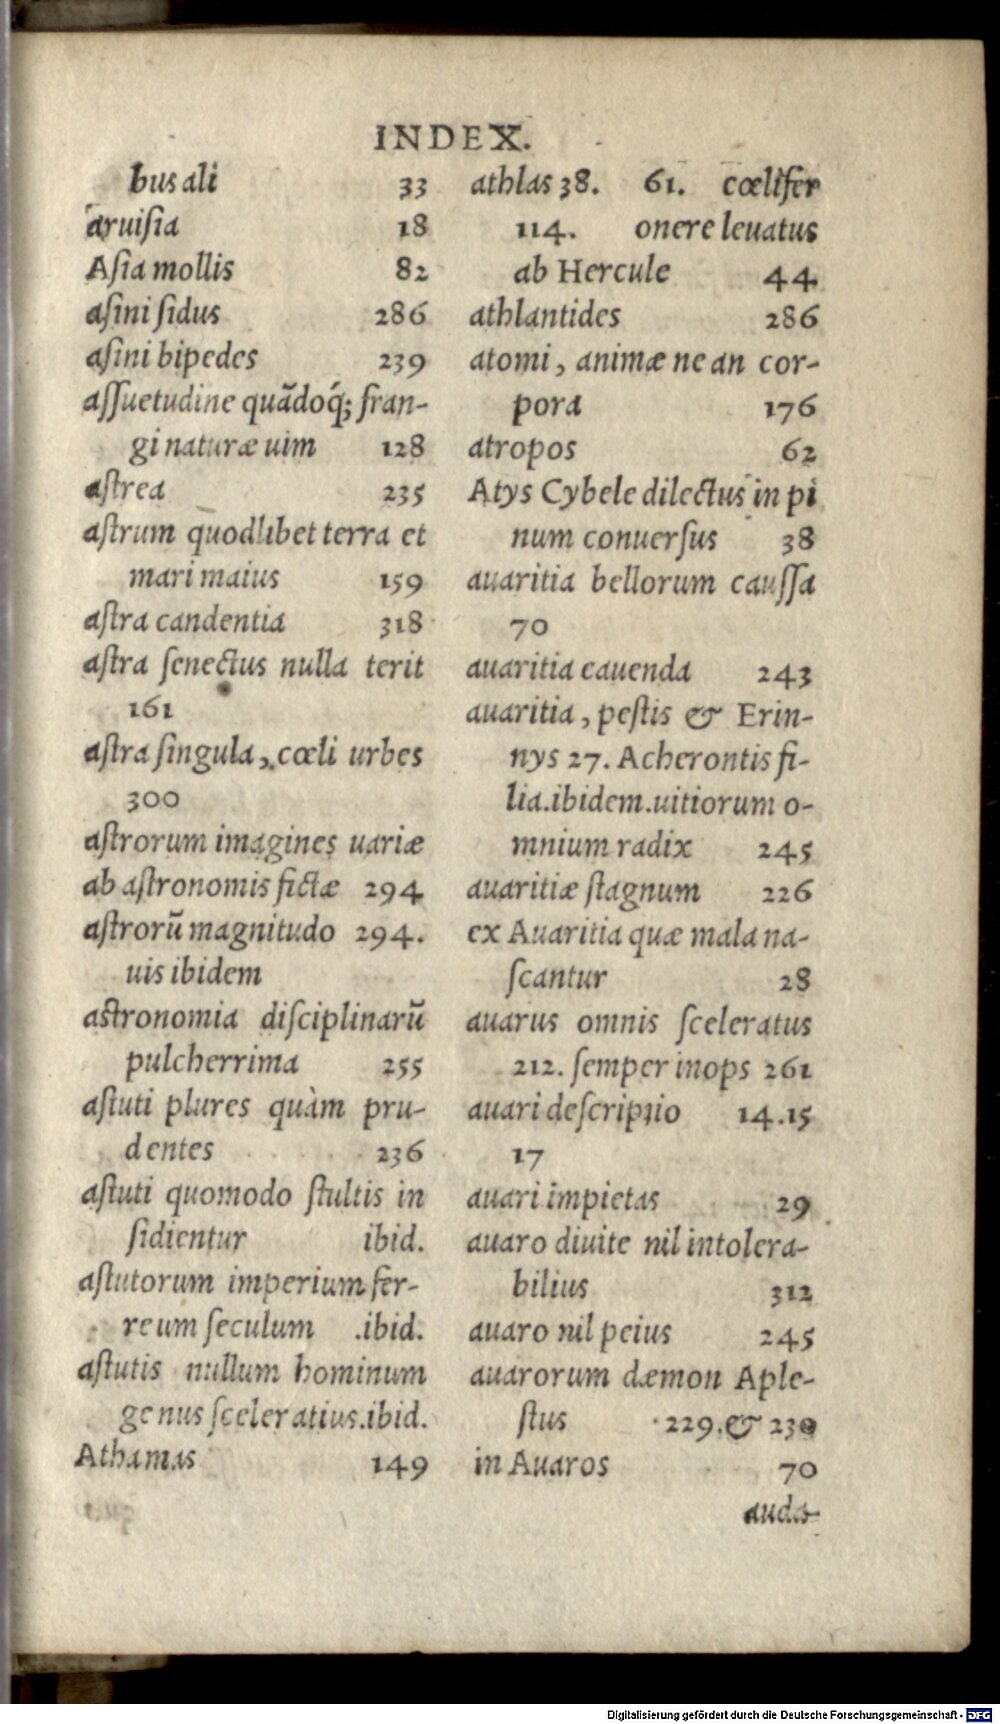 INDEX.
bus ali 33
aruiſia 18
Aſia mollis 82
aſini ſidus 286
aſini bipedes 239
aſſuetudine quãdoq́; fran-
gi naturæ uim 128
aſtrea 235
aſtrum quodlibet terra et
mari maius 159
aſtra candentia 318
aſtra ſenectus nulla terit
161
aſtra ſingula, cœli urbes
300
aſtrorum imagines uariæ
ab aſtronomis fictæ 294
aſtrorũ magnitudo 294.
uis ibidem
astronomia diſciplinarũ
pulcherrima 255
aſtuti plures quàm pru-
dentes 236
aſtuti quomodo ſtultis in
ſidientur ibid.
aſtutorum imperium fer-
reum ſeculum .ibid.
aſtutis nullum hominum
genus ſceleratius.ibid.
Athamas 149
athlas 38. 61. cœlifer
114. onere leuatus
ab Hercule 44
athlantides 286
atomi, animæ ne an cor-
pora 176
atropos 62
Atys Cybele dilectus in pi
num conuerſus 38
auaritia bellorum cauſſa
70
auaritia cauenda 243
auaritia, peſtis & Erin-
nys 27. Acherontis fi-
lia.ibidem.uitiorum o-
mnium radix 245
auaritiæ ſtagnum 226
ex Auaritia quæ mala na-
ſcantur 28
auarus omnis ſceleratus
212. ſemper inops 261
auari deſcriptio 14.15
17
auari impietas 29
auaro diuite nil intolera-
bilius 312
auaro nil peius 245
auarorum dæmon Aple-
ſtus 229.& 230
in Auaros 70
auda-
Digitalisierung gefördert durch die Deutsche Forschungsgemeinschaft - DFG